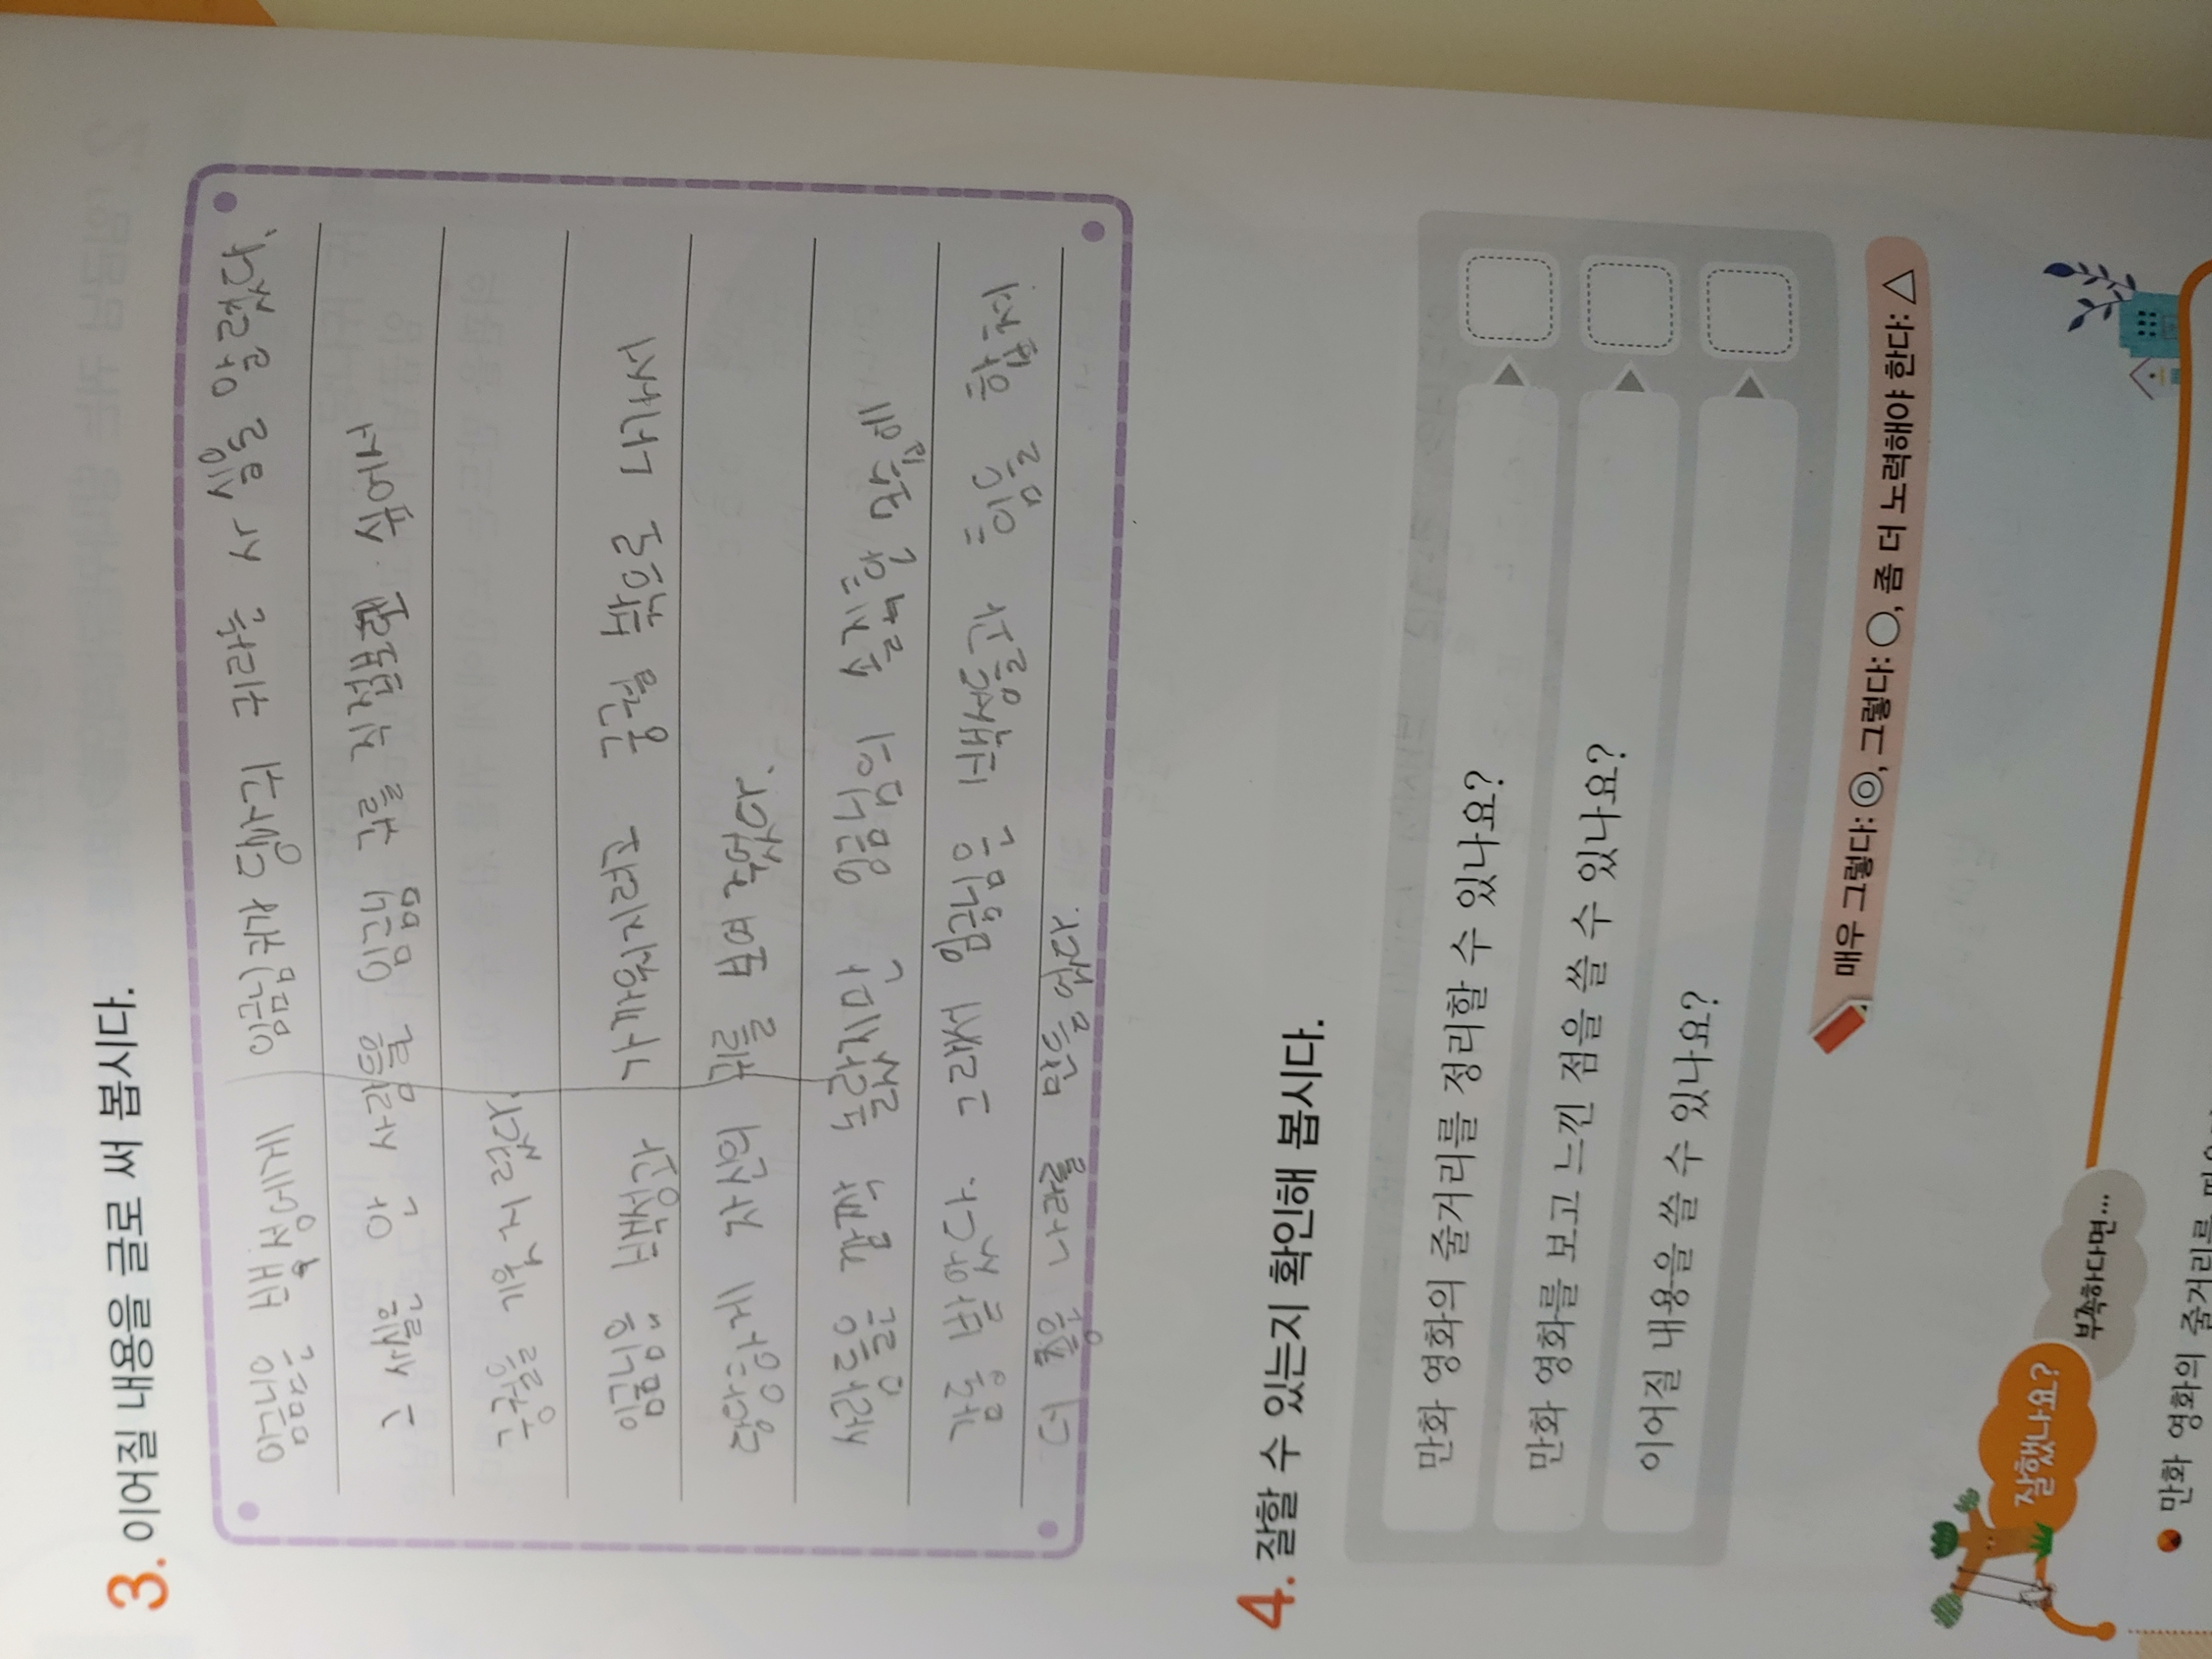 3. 이어질 내용을 글로 써 봅시다.
임금님은 백성에게 임금님귀는 당나귀 귀라는 사실을 알렸다.
그 사실을 안 사람들은 임금님 귀를 직접보러 쉬어서
구경을 가 려 했다.
임금님이 백성과 가까워지려고 궁궐 밖으로 나가서
당당하게 자신의 귀를 보여 줬다.
사람들은 깜짝 놀랐지만 임금님의 솔직한 모습에
감동 받았다 그래서 임금님은 백성들과 힘을 합쳐
더 좋은 나라를 만들었다.
4. 잘할 수 있는지 확인해 봅시다.
만화 영화의 줄거리를 정리할 수 있나요?
만화 영화를 보고 느낀 점을 쓸 수 있나요?
이어질 내용을 쓸 수 있나요?
매우 그렇다: ◎, 그렇다: ○, 좀 더 노력해야 한다: △
잘했나요?
부족하다면…
만화 영화의 줄거리를